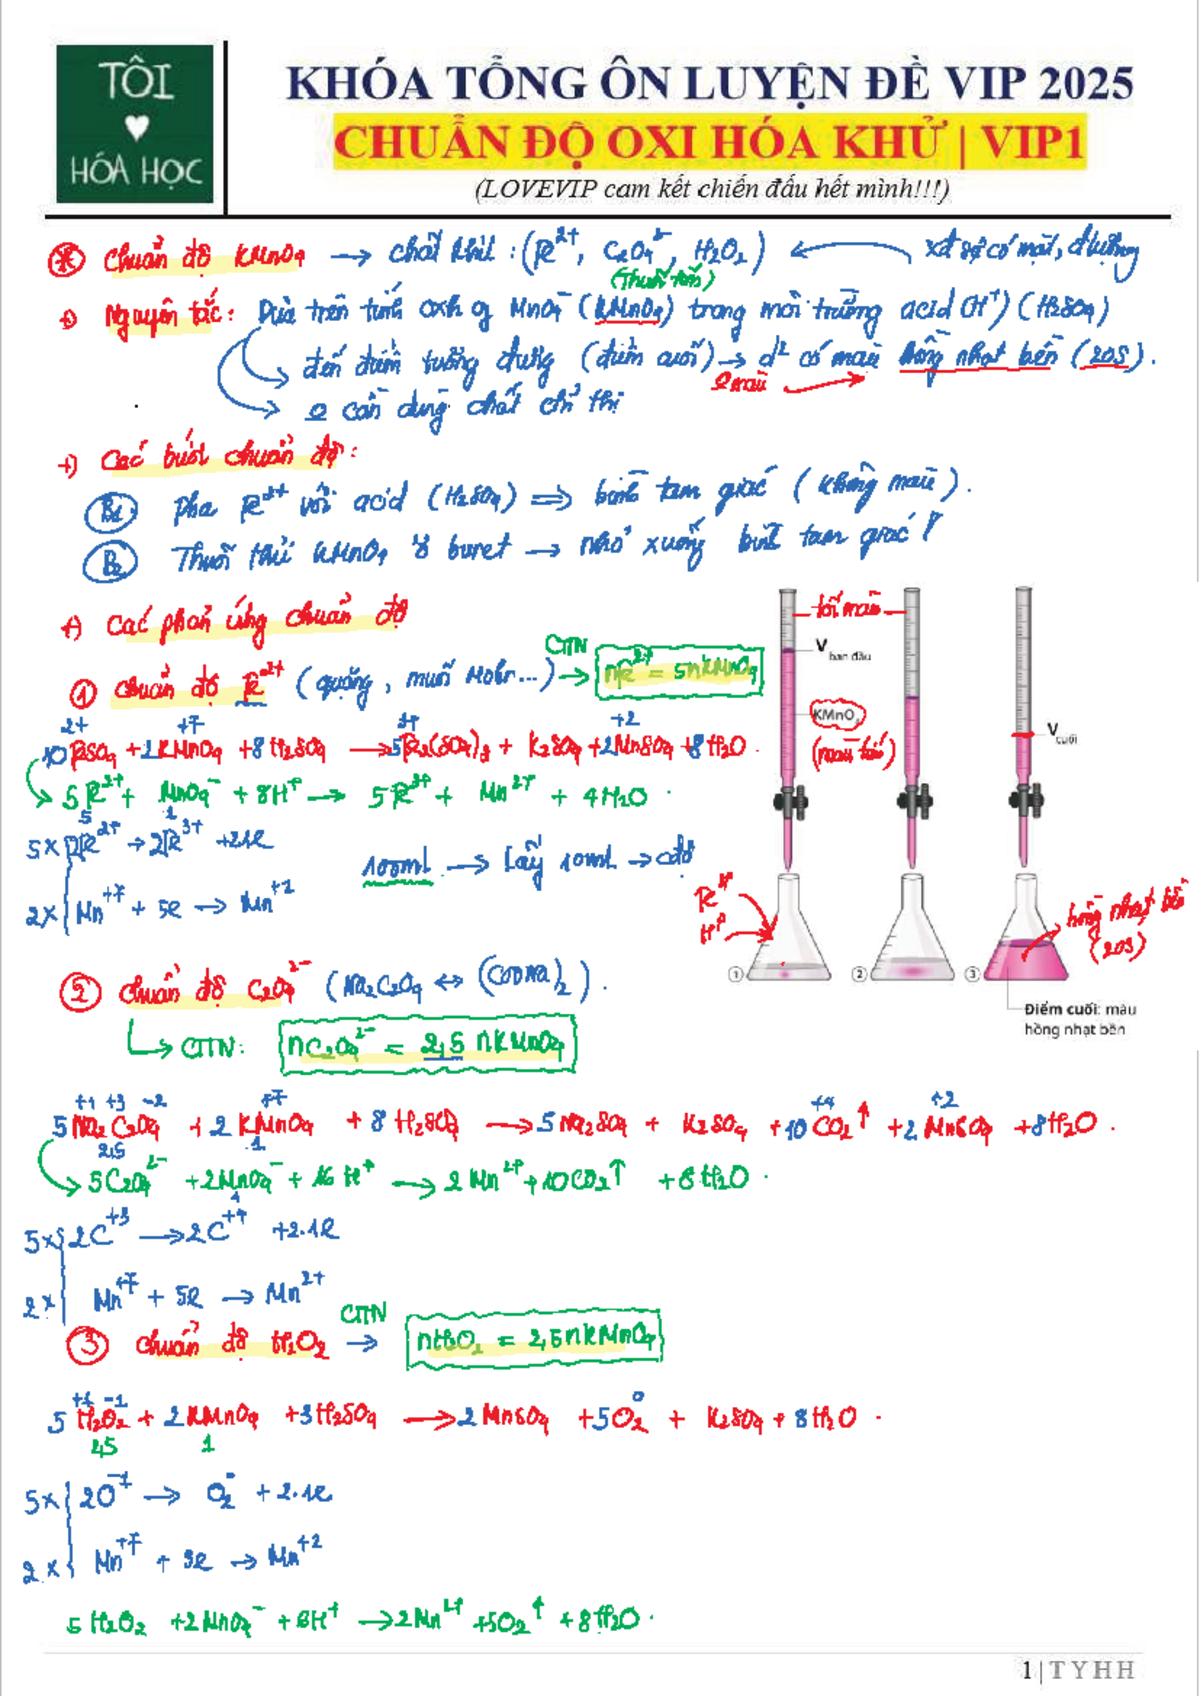 TÔI
♥
HÓA HỌC
KHÓA TỔNG ÔN LUYỆN ĐỀ VIP 2025
CHUẨN ĐỘ OXI HÓA KHỬ | VIP1
(LOVEVIP cam kết chiến đấu hết mình!!!)
Chuẩn độ KMnO4 → chất khử : (Fe2+, C2O4 2-, H2O2) ← xđ sự có mặt, đ lượng
(Thuốc tím)
+) Nguyên tắc: Dựa trên tính oxh of MnO4- (KMnO4) trong môi trường acid (H+) (H2SO4)
đến điểm tương đương (điểm cuối) → d2 có màu hồng nhạt bền (20s).
0 màu
0 cần dùng chất chỉ thị
+) Các bước chuẩn độ:
B1 Pha Fe2+ với acid (H2SO4) ⇒ bình tam giác (không màu).
B2 Thuốc thử KMnO4 ở buret → nhỏ xuống bình tam giác !
+) Các phản ứng chuẩn độ
① chuẩn độ Fe2+ (quặng, muối Mohr...) →
CTN
nFe2+ = 5nKMnO4
2+ +7 3+ +2
10FeSO4 + 2KMnO4 + 8H2SO4 → 5Fe2(SO4)3 + K2SO4 + 2MnSO4 + 8H2O.
5Fe2+ + MnO4- + 8H+ → 5Fe3+ + Mn2+ + 4H2O.
5 1
5x 2Fe2+ → 2Fe3+ + 2.1e
2x Mn+7 + 5e → Mn+2
100ml → Lấy 10ml → cđộ
tối màu
V ban đầu
KMnO4
(màu tím)
V cuối
Fe2+
H+
hồng nhạt bền
(20s)
①
②
③
Điểm cuối: màu
hồng nhạt bền
② chuẩn độ C2O4 2- (Na2C2O4 ↔ (COONa)2).
CTN: nC2O4 2- = 2,5 nKMnO4
+1 +3 -2 +7 +4 +2
5Na2C2O4 + 2KMnO4 + 8H2SO4 → 5Na2SO4 + K2SO4 + 10CO2↑ + 2MnSO4 + 8H2O.
2,5 1
5C2O4 2- + 2MnO4- + 16H+ → 2Mn2+ + 10CO2↑ + 8H2O.
5x 2C+3 → 2C+4 + 2.1e
2x Mn+7 + 5e → Mn2+
CTN
③ chuẩn độ H2O2 → nH2O2 = 2,5nKMnO4
+1 -1 0
5H2O2 + 2KMnO4 + 3H2SO4 → 2MnSO4 + 5O2 + K2SO4 + 8H2O.
2,5 1
5x 2O-1 → O2 + 2.1e
2x Mn+7 + 5e → Mn+2
5H2O2 + 2MnO4- + 6H+ → 2Mn2+ + 5O2↑ + 8H2O.
1 | T Y H H